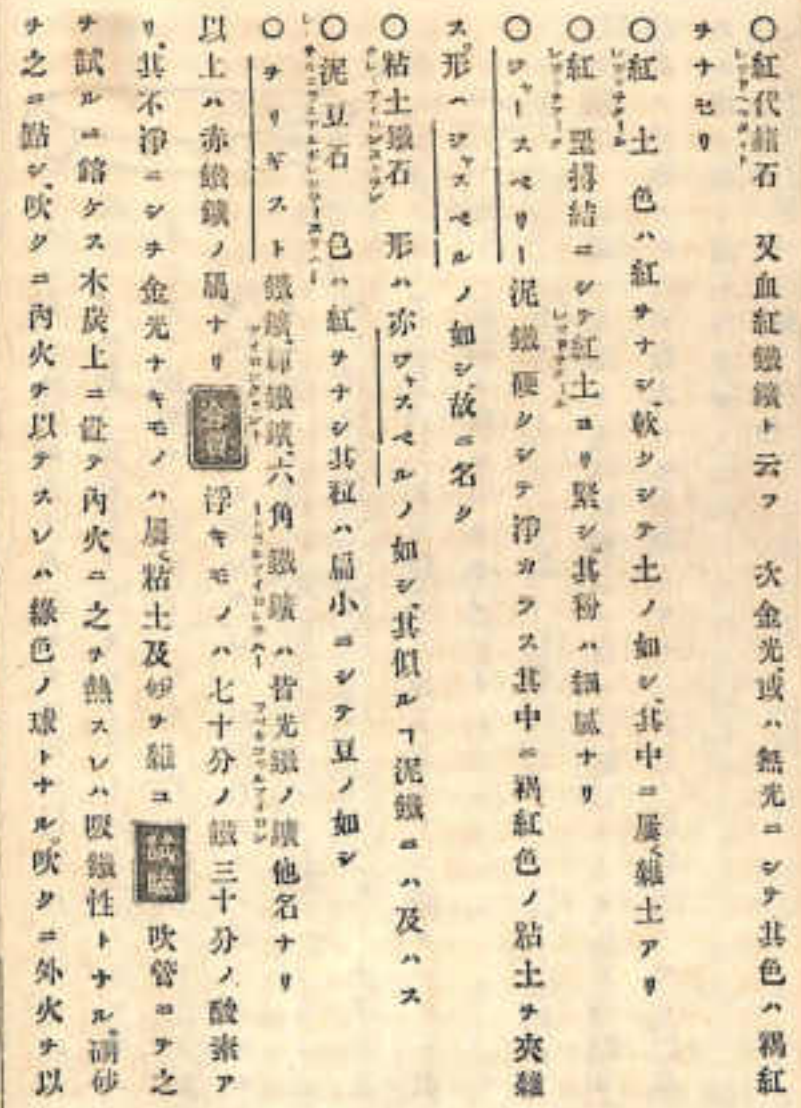 ○紅代赭石　又血紅鐵鑛ト云フ　次金光、或ハ無光ニシテ其色ハ褐紅
ヲナセリ
○紅　土　色ハ紅ヲナシ、軟クシテ土ノ如シ、其中ニ屢〻雜土アリ
○紅　堊　搏結ニシテ紅土ヨリ緊シ、其粉ハ細膩ナリ
○ジャースペリー泥鐵　硬クシテ淨カラス其中ニ褐紅色ノ粘土ヲ夾雜
ス、形ハジャスペルノ如シ、故ニ名ク
○粘土鐵石　形ハ亦ジャスペルノ如シ、其似ルヿ泥鐵ニハ及ハス
○泥豆石　色ハ紅ヲナシ其粒ハ扁小ニシテ豆ノ如シ
○ヲリギスト鐵鑛、鐵鑛、六角鐵鑛ハ皆光鐵ノ鑛他名ナリ
以上ハ赤鐵鑛ノ屬ナリ　浮キモノハ七十分ノ鐵三十分ノ酸素ア
リ、其不淨ニシテ金光ナキモノハ屢〻粘土及砂ヲ雜ユ　試驗　吹管ニテ之
ヲ試ルニ鎔ケス木炭上ニ置テ內火ニ之ヲ熱スレハ吸鐵性トナル、硼砂
ヲ之ニ點シ、吹クニ內火ヲ以テスレハ綠色ノ球トナル、吹クニ外火ヲ以